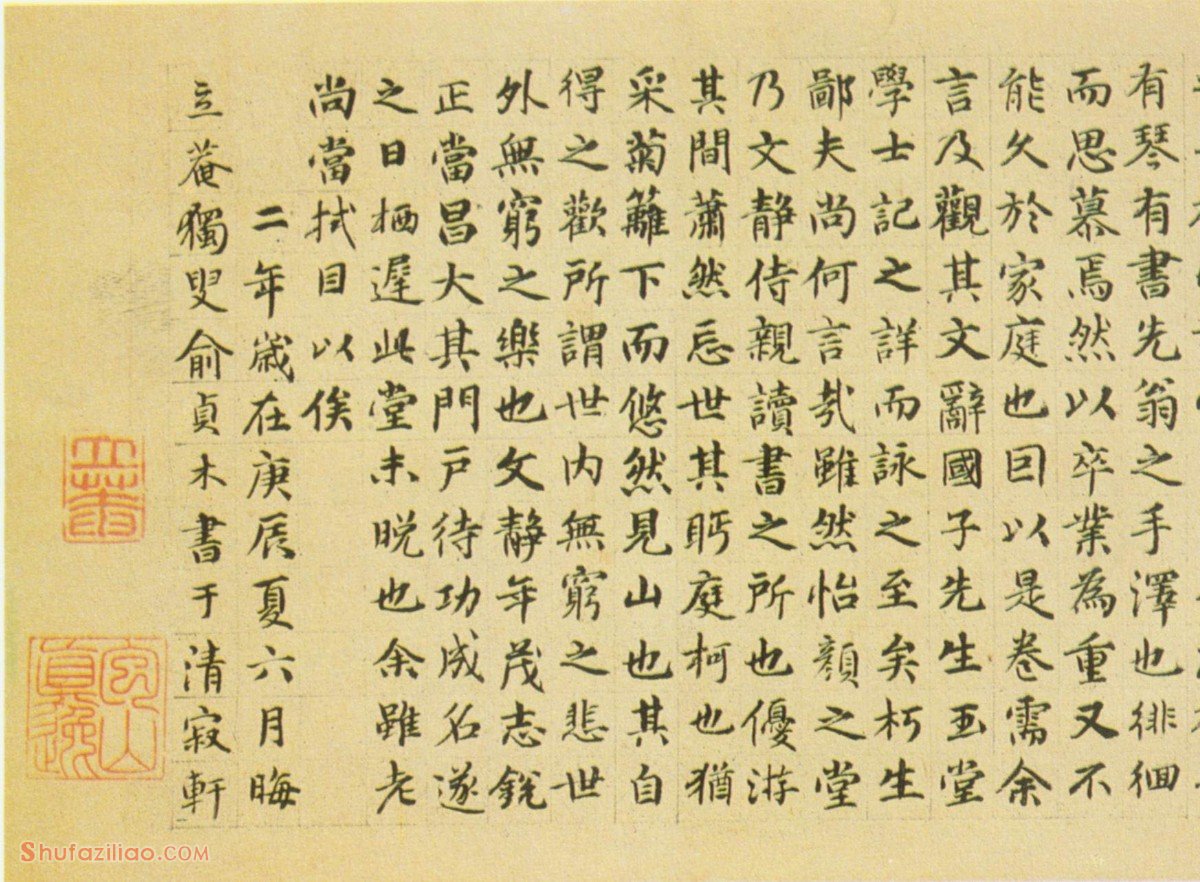 有琴有書先翁之手澤也徘徊
而思慕焉然以卒業為重又不
能久於家庭也因以是卷需余
言及觀其文辭國子先生玉堂
學士記之詳而詠之至矣朽生
鄙夫尚何言哉雖然怡顏之堂
乃文靜侍親讀書之所也優游
其間蕭然忘世其眄庭柯也猶
采菊籬下而悠然見山也其自
得之歡所謂世內無窮之悲世
外無窮之樂也文靜年茂志銳
正當昌大其門戶待功成名遂
之日栖遲此堂未晚也余雖老
尚當拭目以俟
二年歲在庚辰夏六月晦
立菴獨叟俞貞木書于清寂軒
Shufaziliao.COM